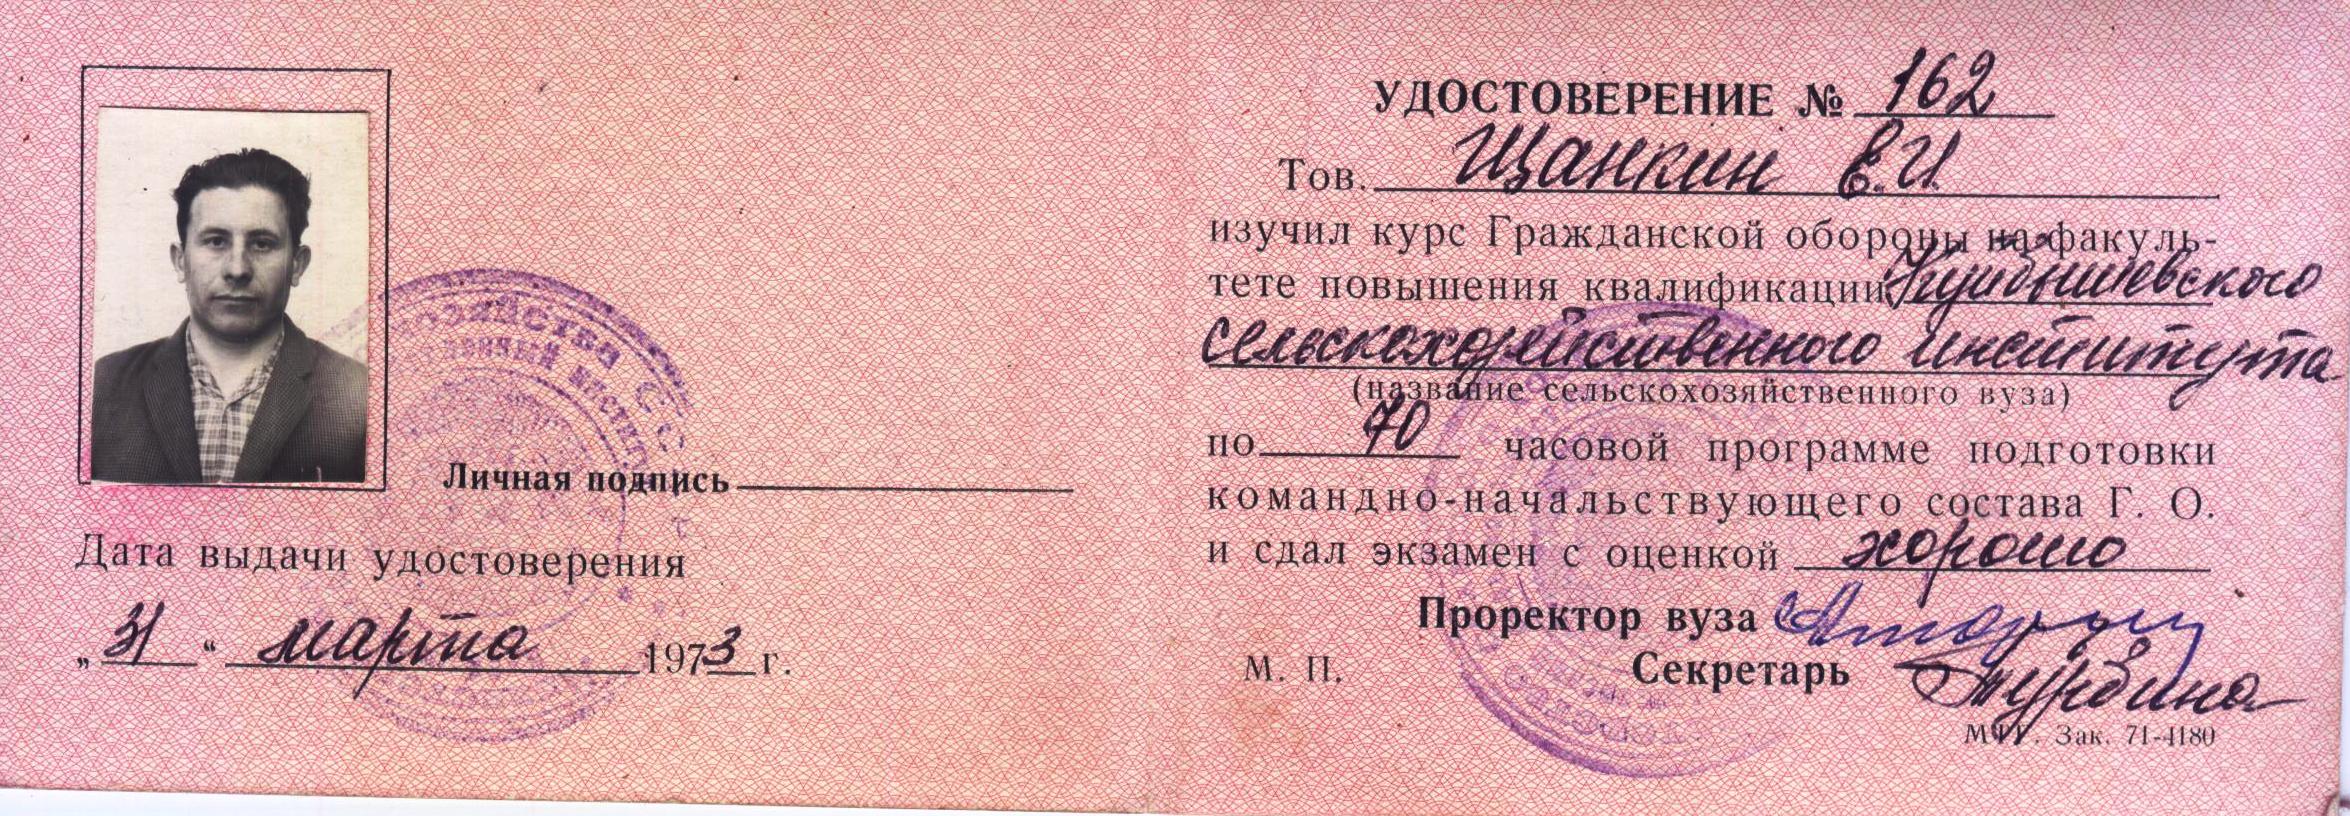 Личная подпись
Дата выдачи удостоверения
„31“ марта 1973 г.
УДОСТОВЕРЕНИЕ № 162
Тов. Щанкин Е.И.
изучил курс Гражданской обороны на факуль-
тете повышения квалификации Куйбышевского
сельскохозяйственного института
(название сельскохозяйственного вуза)
по 70 часовой программе подготовки
командно-начальствующего состава Г. О.
и сдал экзамен с оценкой хорошо
Проректор вуза
М. П. Секретарь Турбина
Зак. 71-4180